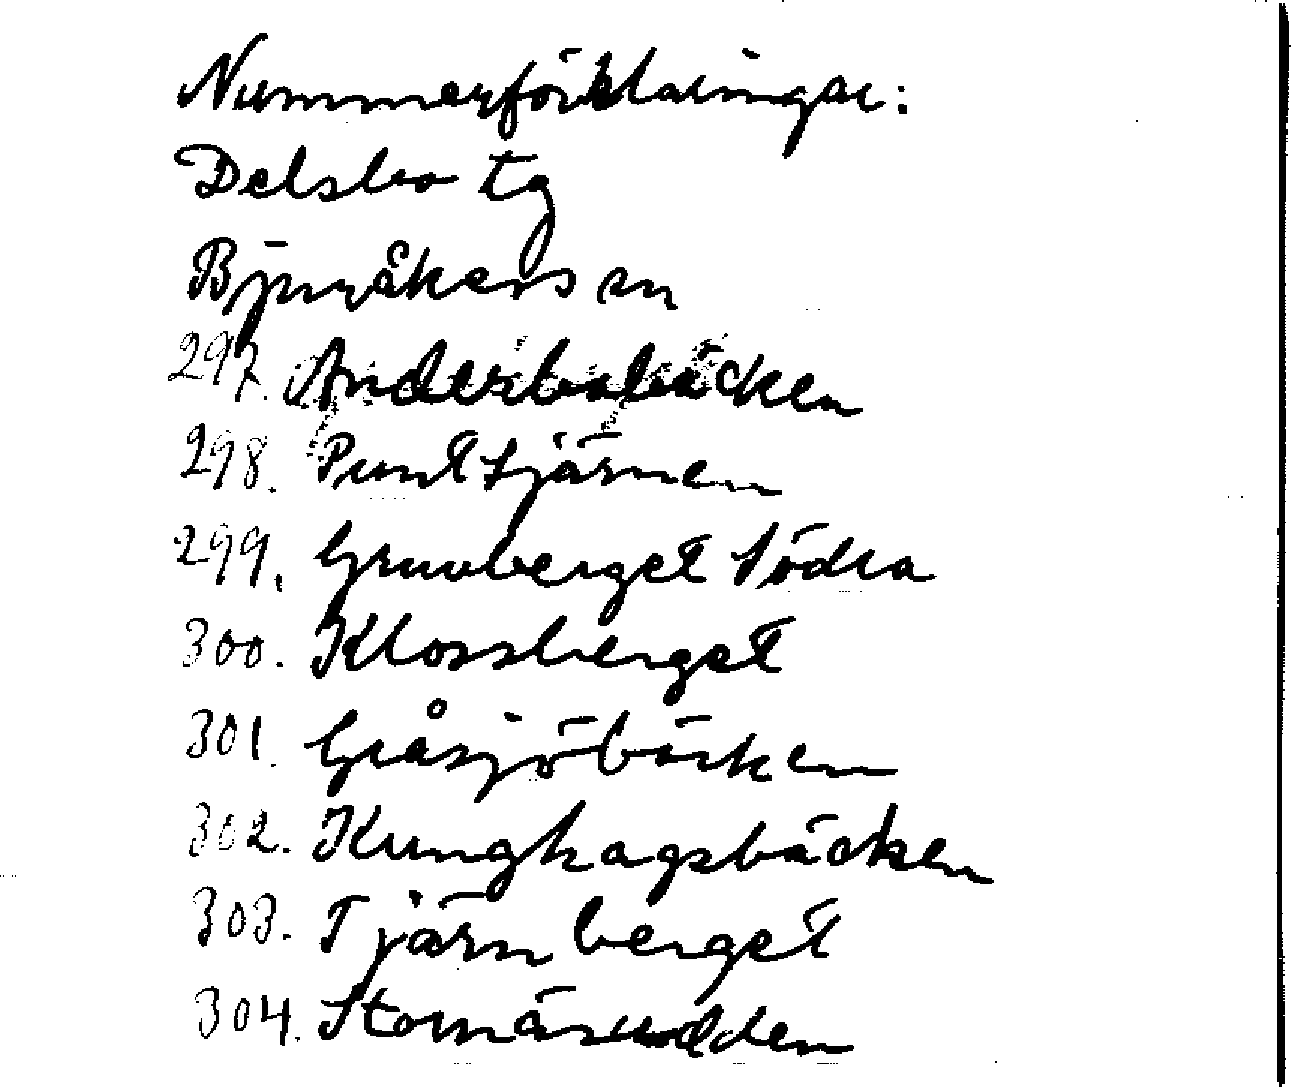 Nummerförklaringar:
Delsbo tg
Bjuråkers sn
297. Anderbobäcken
298. Punttjärnen
299. Gruvberget Södra
300. Klossberget
301. Gråsjöbäcken
302. Kunghagsbäcken
303. Tjärnberget
304. Stornäsudden